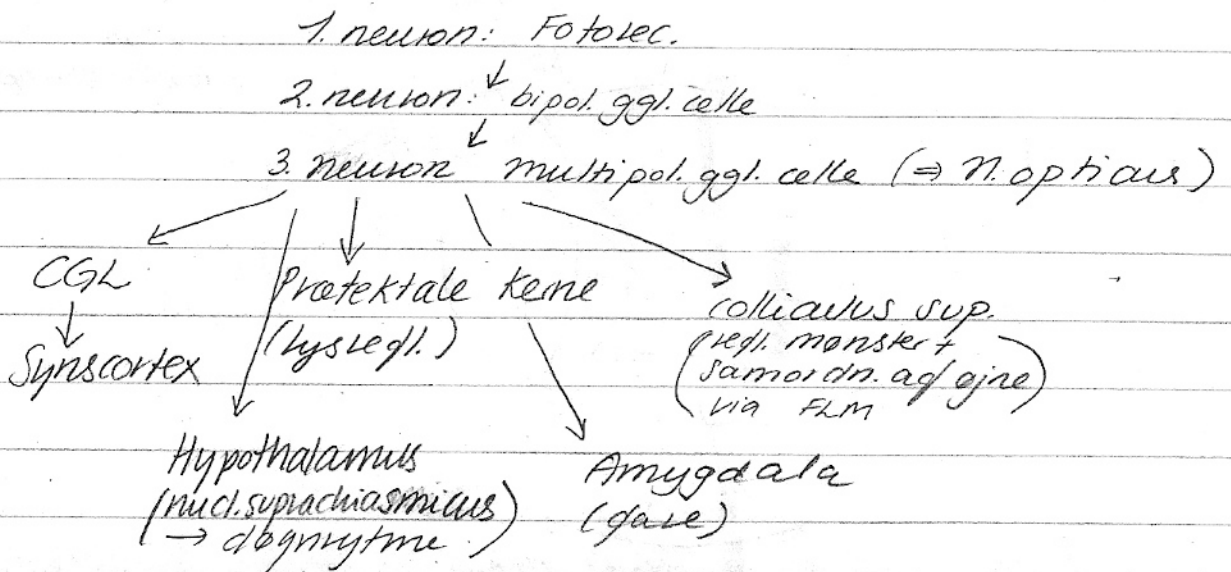 1. neuron: Fotorec.
2. neuron: bipol. ggl. celle
3. neuron multipol. ggl. celle (⇒ N. opticus)
CGL
Synscortex
Prætektale kerne
(lysregl.)
colliculus sup.
(regl. mønster +
samordn. af øjne)
via FLM
Hypothalamus
(nucl. suprachiasmicus)
→ døgnrytme
Amygdala
(fare)